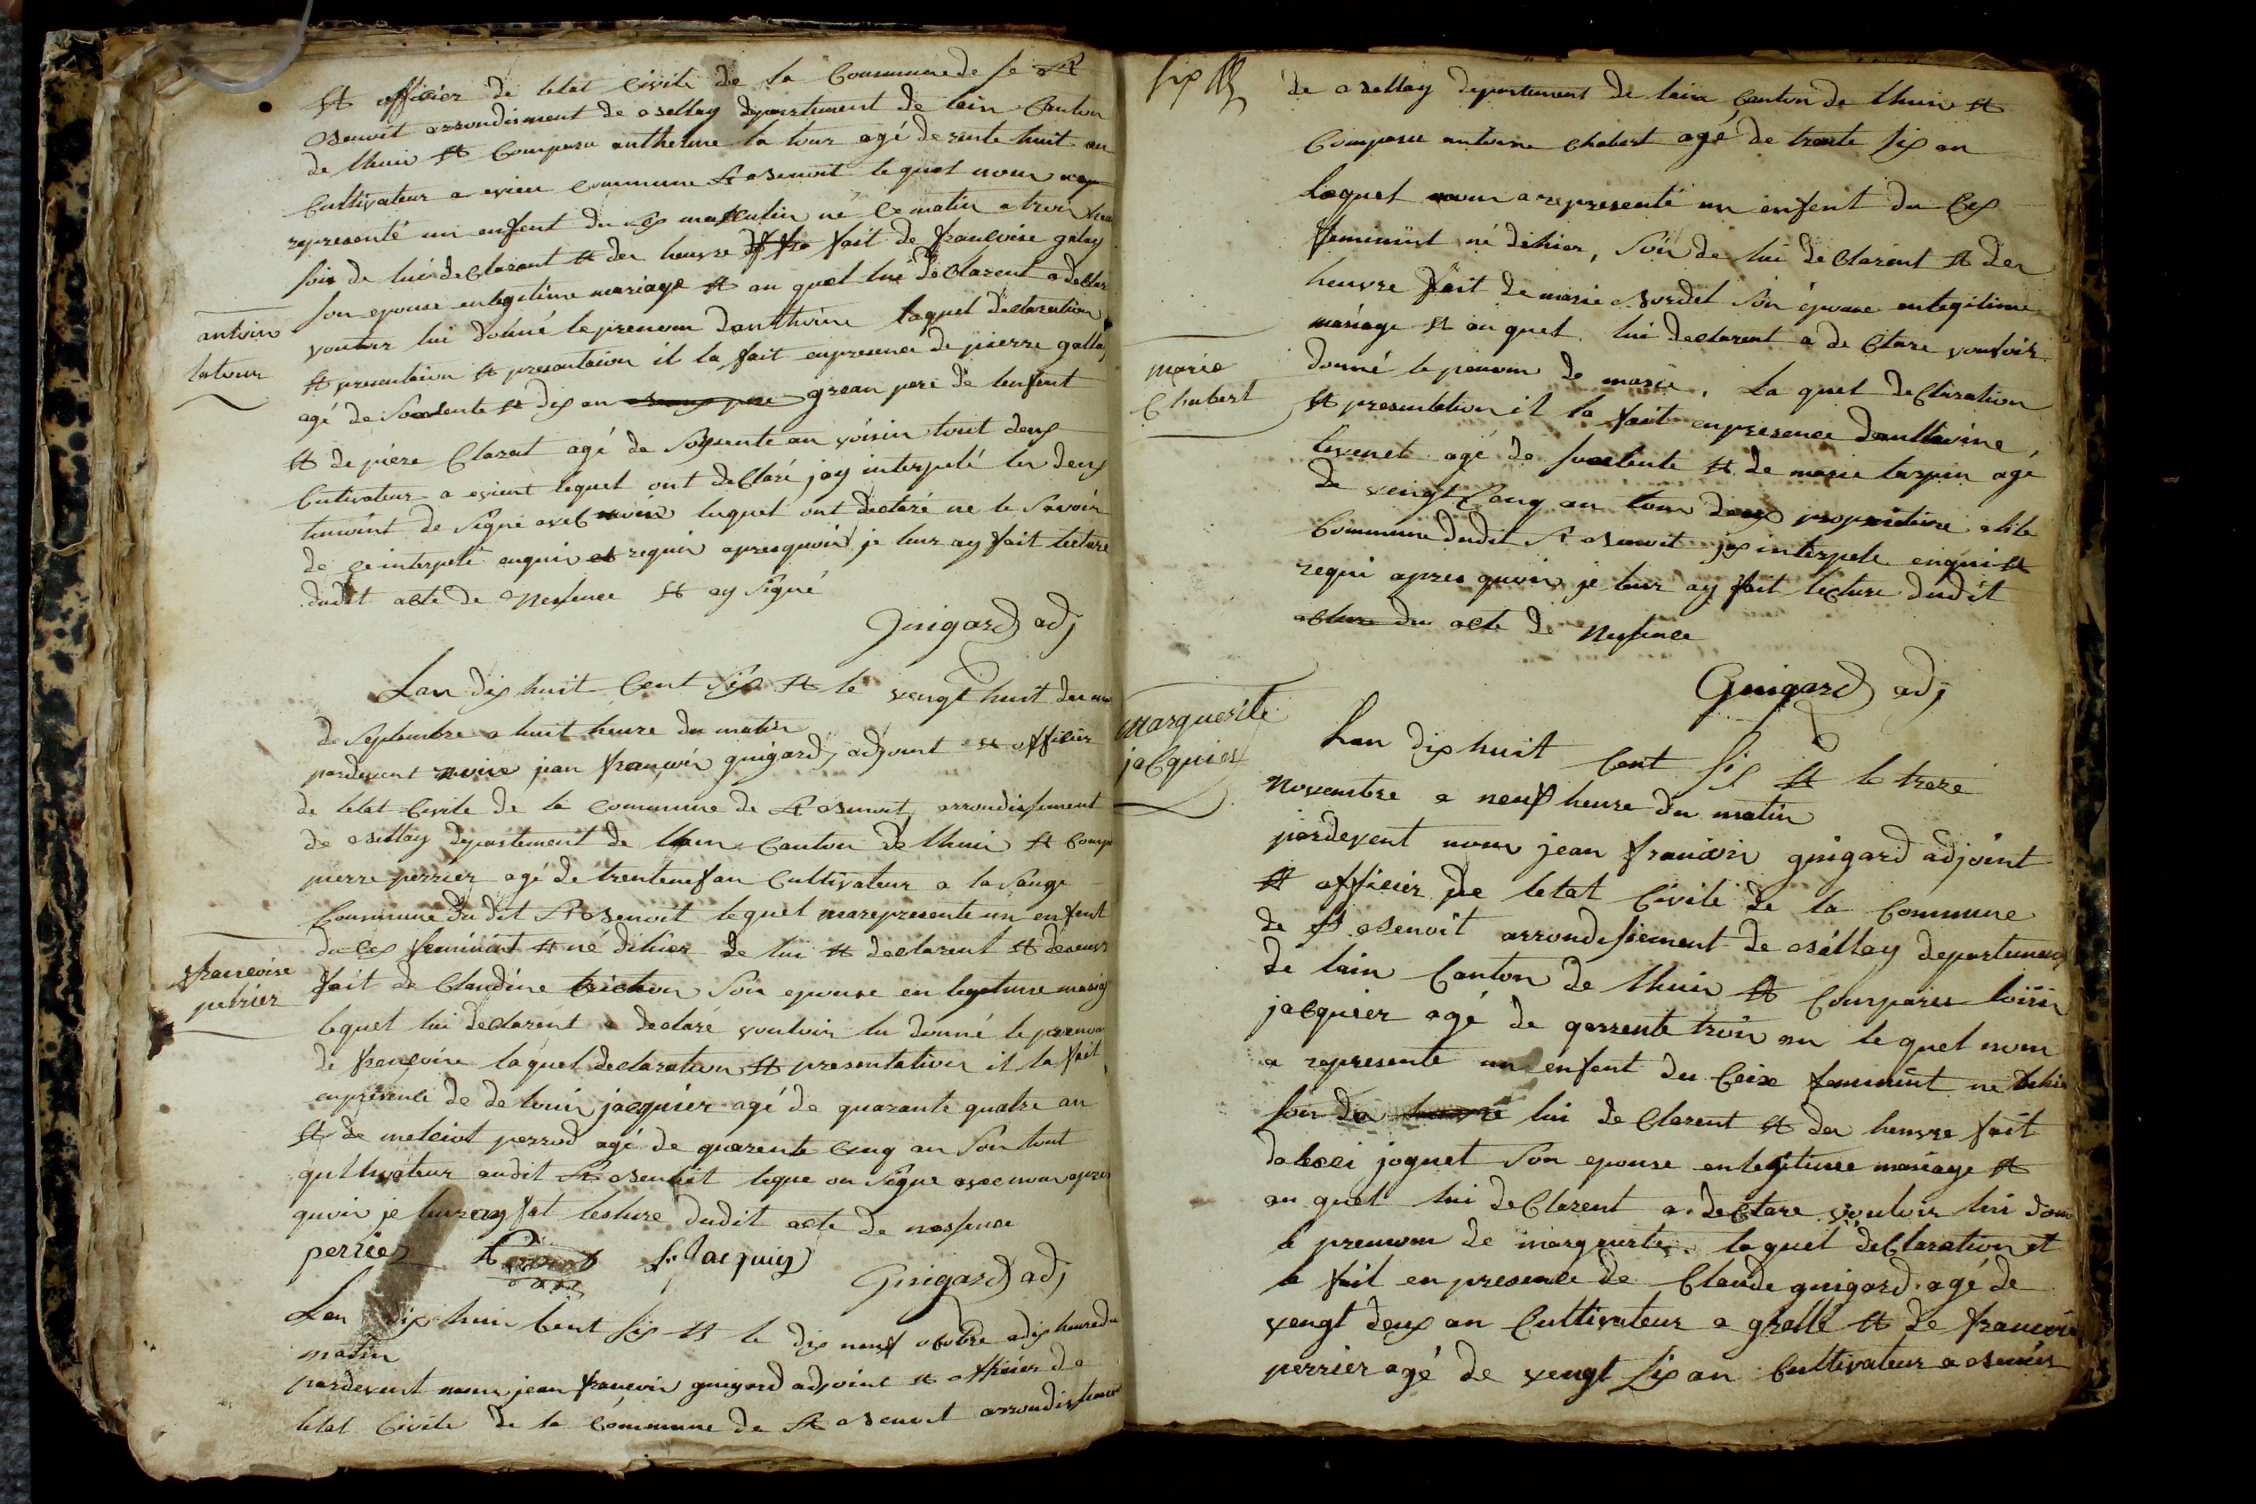 St officier de letat Civile de la Commune de se St
Benoit arrondisment de Bellay departement de lain Canton
de lhuis et Comparu anthelme latour agé de rente huit an
Cultivateur a evieu commune St Benoit lequel nous
representé un enfent du sex masculin né ce matin a trois heure
soir de lui declarent et der heuvre fait de francoise galay
son epouse en legitime mariage et au quel lui declarent a declar
antoine
latour
vouloir lui donné le prenom danthoine laquel declaration
et presentation il la fait en presence de pierre gallay
agé de soisente et dix an grean pere de lenfent
et de piere Clarat agé de soisente an voisin tout deux
Cultivateur a evieu lequel ont declaré jay interpelé les deux
temoint de signé avec moi lequel ont declaré ne le savoir
de ce interpelé enquis et requis apres quoi je leur ay fait lecture
dudit acte de nessence et ay signé
Guigard adj
Lan dix huit Cent Six et le vengt huit du mois
de Septembre a huit heure du matin
pardevent nous jean francois guigard, adjoint et officier
de letat Civile de la Commune de St Benoit, arrondissement
de Bellay departement de lain Canton de lhuis et Compa
pierre perrier agé de trente nef an Cultivateur a la Sauge
Commune du dit St Benoit lequel ma represente un enfent
du sex feminint et né dihier de lui et declarent et
francoise
perrier
fait de Claudine trichon son epouse en legitime mariag
lequel lui declarent a declaré vouloir lu donné le prenom
de francoise laquel declaration et presentation il la fait
en presence de de louis jacquier agé de quarante quatre an
et de perrod agé de quarente cinq an son tout
qultivateur audit St Benoit leque on signe avec nous apres
quoi je leur ay fat lecture dudit acte de nessence
perrier L Jacquier
Guigard adj
Lan dix huit Cent six et le dix neuf octobre a dix heure du
matin
pardevent nous jean francois guigard adjoint et officier de
letat Civile de la Commune de St Benoit arrondissement
six
de Bellay departement de lain Canton de lhuis et
Comparu antoine Chabert agé de trente six an
lequel nous a representé un enfent du sex
feminint né dihier, soir de lui declarent et der
heuvre fait de marie Bordel son épouse en legitime
mariage et au quel lui declarent a declare vouloir
marie
Chabert
donné le prenom de marie. La quel declaration
et presentation il la fait en presence danthoine
tevenet agé de soisente et de marie tarpin agé
de vengt Cinq an tous deux proprietaire
Commune dudit St Benoit jey interpele enquis et
requi apres quoi je leur ay fait lecture dudit
du acte de Nessence
Guigard adj
Marguerite
jacquier
Lan dix huit Cent Six et le treze
Novembre a neuf heure du matin
pardevent nous jean francois guigard adjoint
et officier de letat Civile de la Commune
de St Benoit arrondissement de Bellay departement
de lain Canton de lhuis et Comparu louis
jacquier agé de qarrente trois an lequel nous
a represente un enfent du Ceix feminint ne dihier
soir de lui declarent et der heuvre fait
de joguet son epouse en legitime mariage et
au quel lui declarent a declare vouloir lui donné
le prenom de marguerite. laquel declaration et
la fait en presence de Claude guigard agé de
vengt deux an Cultivateur a et de francois
perrier agé de vengt six an Cultivateur a